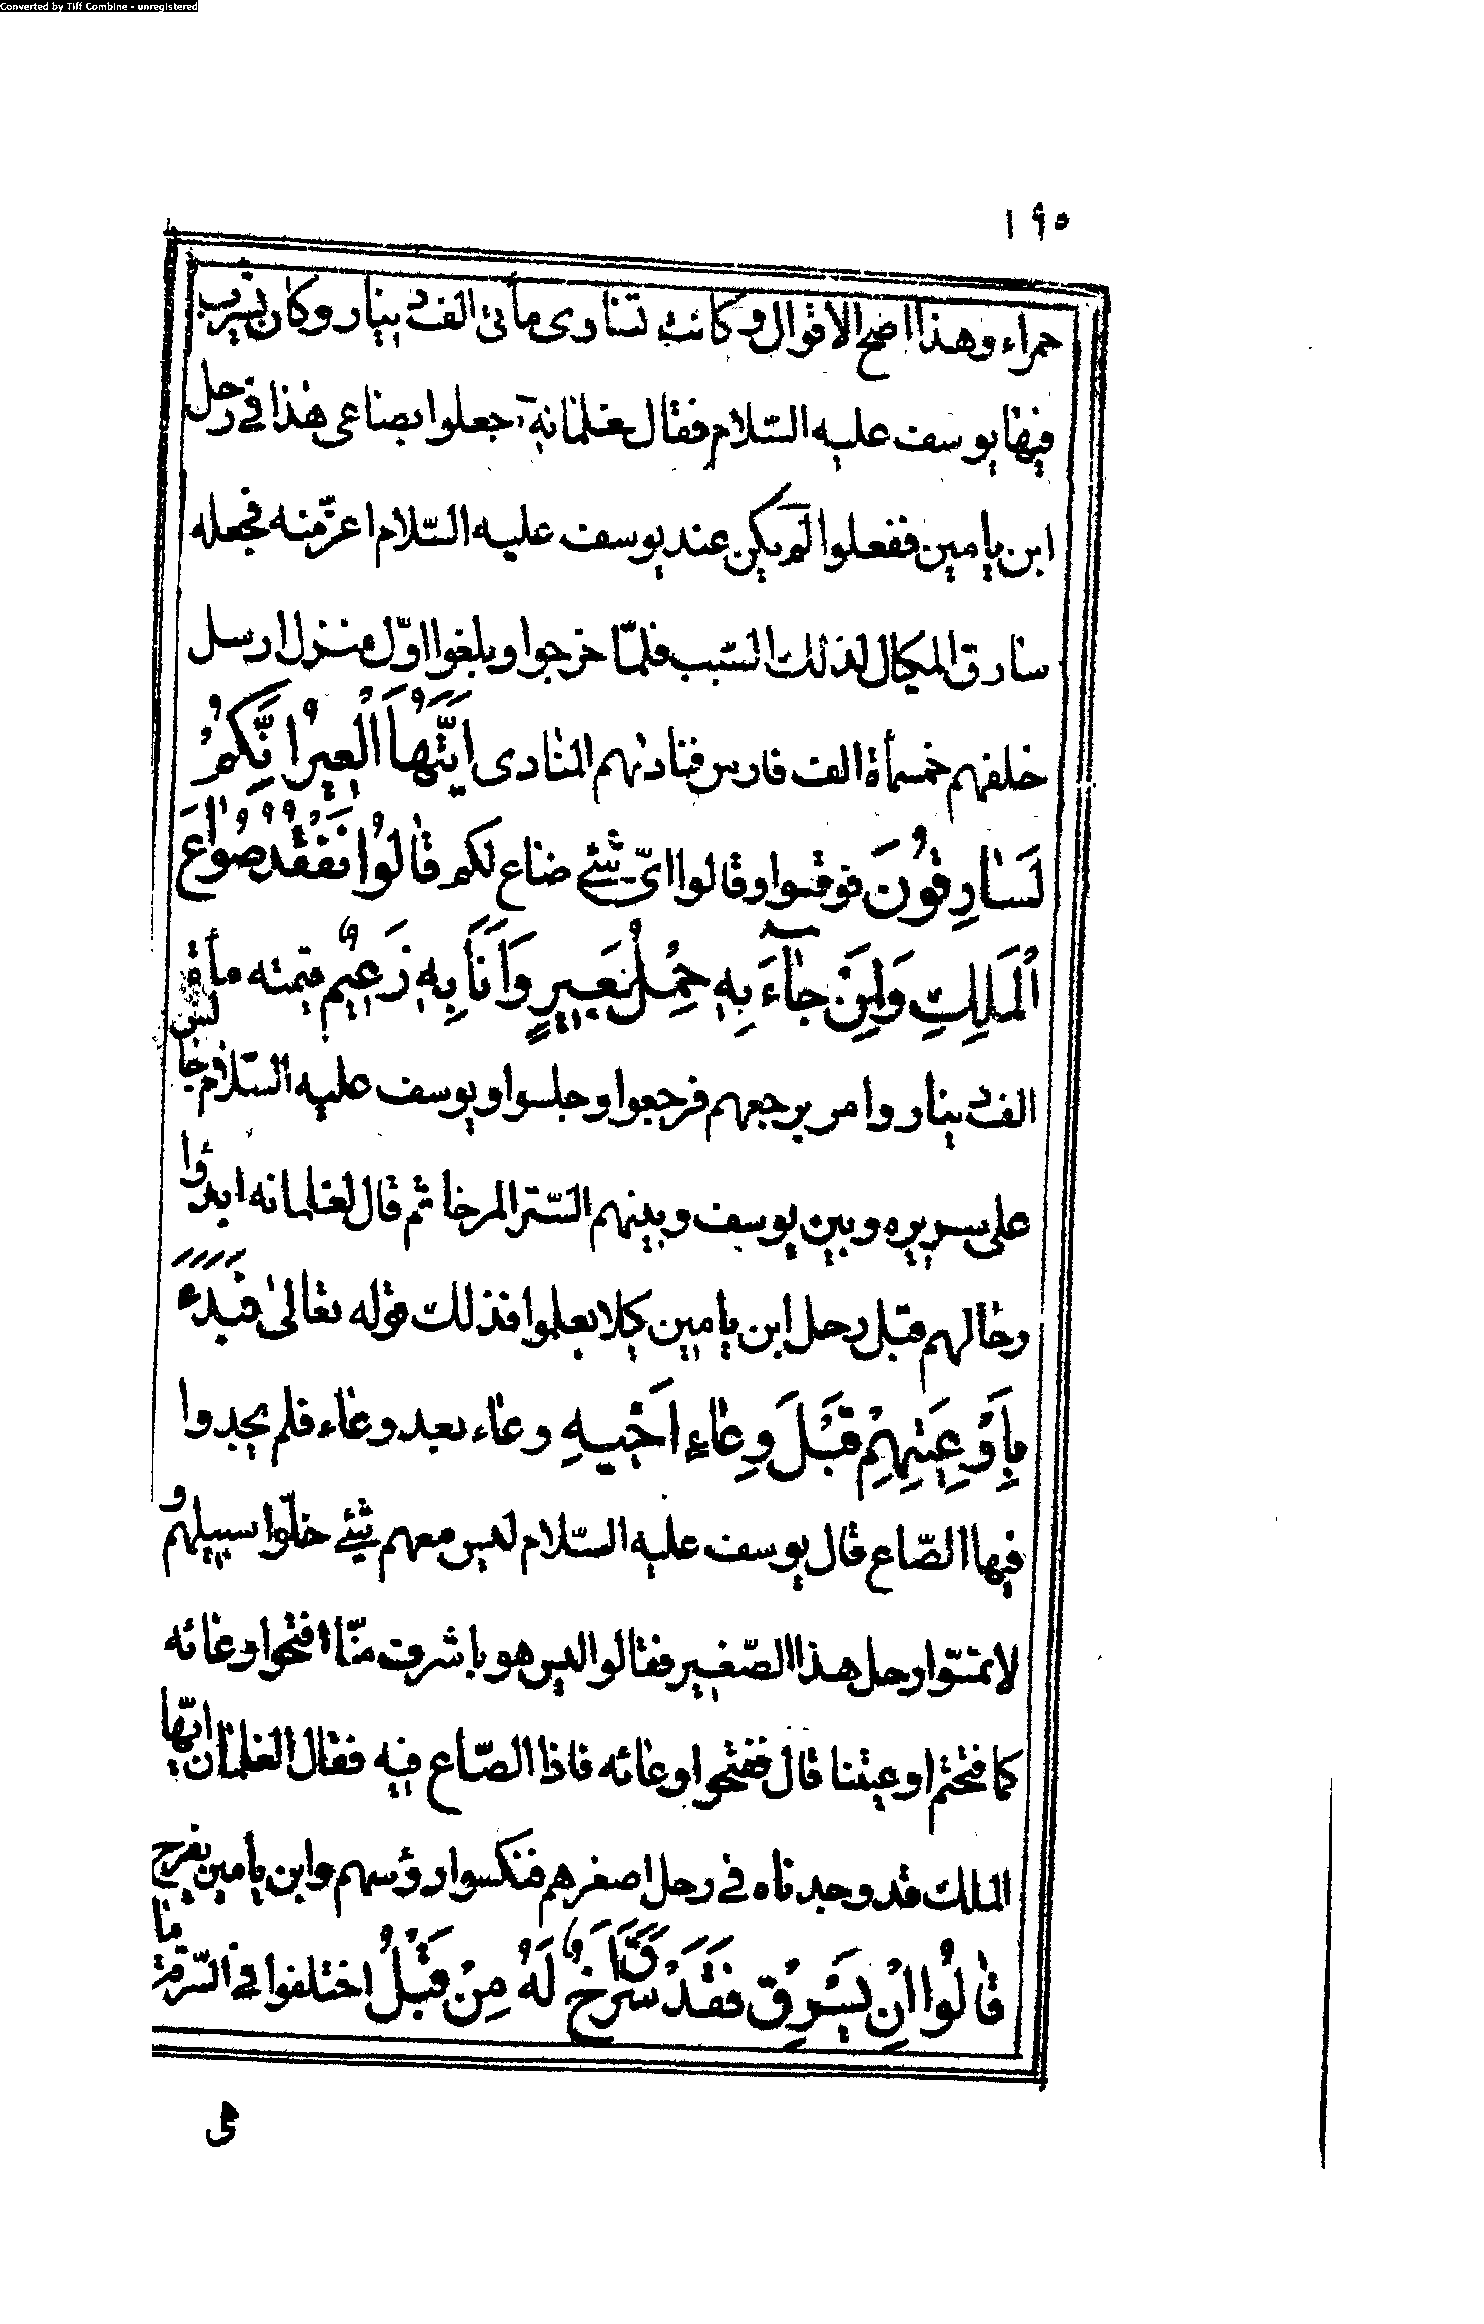 Converted by Tiff Combine - unregistered
١٩٥
حمراء وهذا اصح الاقوال وكانت تساوى مأتى الف دينار وكان يشرب
فيها يوسف عليه السّلام فقال لغلمانه اجعلوا بصناعى هذا فى رحل
ابن يامين ففعلوا لم يكن عند يوسف عليه السّلام اعزّ منه فجعله
سارق المكيال لذلك السّبب فلمّا خرجوا وبلغوا اوّل منزل ارسل
خلفهم خمسمأة الف فارس فنادىهم المنادى اَيَّتُهَا الْعِيْرُ اِنَّكُمْ
لَسَارِقُونَ فوقفوا وقالوا اىّ شئ ضاع لكم قَالُوْا نَفْقِدُ صُوَاعَ
الْمَلِكِ وَلِمَنْ جَآءَ بِهٖ حِمْلُ بَعِيْرٍ وَاَنَا بِهٖ زَعِيْمٌ قيمته مأتى
الف دينار وامر برجعهم فرجعوا وجلسوا ويوسف عليه السّلام جالس
على سريره وبين يوسف وبينهم السّتر المرخا ثم قال لغلمانه ابدؤا
رحالهم قبل رحل ابن يامين كيلا يعلموا فذلك قوله تعالىٰ فَبَدَءَ
بِاَوْعِيَتِهِمْ قَبْلَ وِعَاءِ اَخِيْهِ وعاء بعد وعاء فلم يجدوا
فيها الصّاع قال يوسف عليه السّلام ليس معهم شئ خلّوا سبيلهم و
لا تمسّوا رحل هذا الصّغير فقالوا ليس هو باشرف منّا افتحوا وعائه
كما فتحتم اوعيتنا قال ففتحوا وعائه فاذا الصّاع فيه فقال الغلمان ايّها
الملك قد وجدناه فى رحل اصغرهم فنكسوا رؤسهم وابن يامين يفرح
قَالُوْا اِنْ يَسْرِقْ فَقَدْ سَرَقَ اَخٌ لَهُ مِنْ قَبْلُ اختلفوا فى السّرقة ما